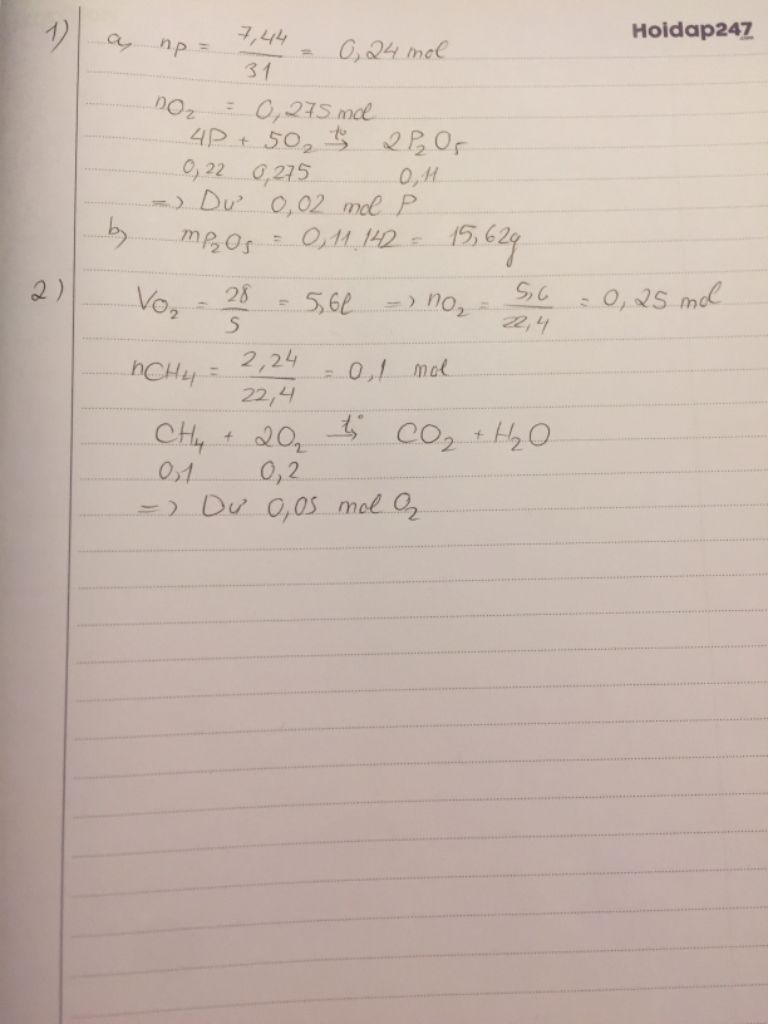 Hoidap247.com
1) a, nP = 7,44/31 = 0,24 mol
nO₂ = 0,275 mol
4P + 5O₂ →t° 2P₂O₅
0,22 0,275 0,11
=> Dư 0,02 mol P
b, mP₂O₅ = 0,11.142 = 15,62g
2) VO₂ = 28/5 = 5,6l => nO₂ = 5,6/22,4 = 0,25 mol
nCH₄ = 2,24/22,4 = 0,1 mol
CH₄ + 2O₂ →t° CO₂ + H₂O
0,1 0,2
=> Dư 0,05 mol O₂